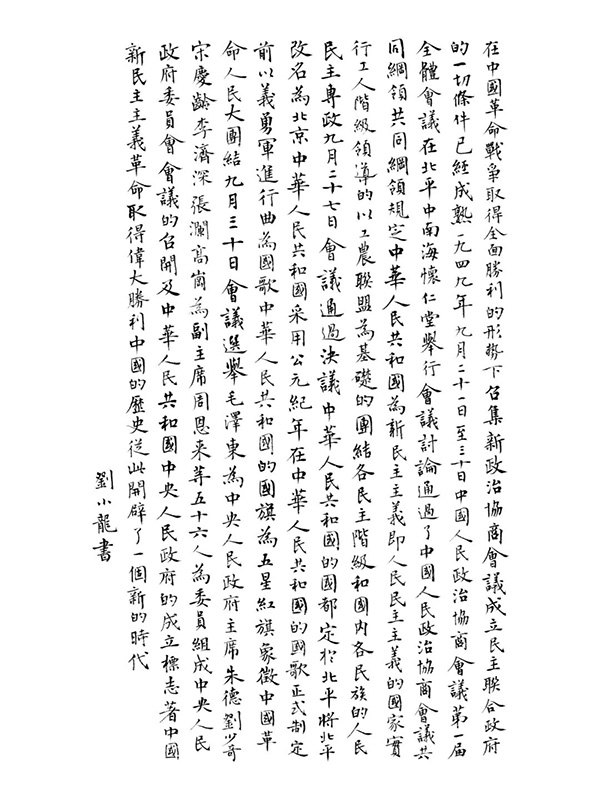 在中國革命戰爭取得全面勝利的形勢下召集新政治協商會議成立民主聯合政府
的一切條件已經成熟一九四九年九月二十一日至三十日中國人民政治協商會議第一届
全體會議在北平中南海懷仁堂舉行會議討論通過了中國人民政治協商會議共
同綱領共同綱領規定中華人民共和國為新民主主義即人民民主主義的國家實
行工人階級領導的以工農聯盟為基礎的團結各民主階級和國内各民族的人民
民主專政九月二十七日會議通過決議中華人民共和國的國都定於北平將北平
改名為北京中華人民共和國采用公元紀年在中華人民共和國的國歌正式制定
前以義勇軍進行曲為國歌中華人民共和國的國旗為五星紅旗象徵中國革
命人民大團結九月三十日會議選舉毛澤東為中央人民政府主席朱德劉少奇
宋慶齡李濟深張瀾高崗為副主席周恩来等五十六人為委員組成中央人民
政府委員會會議的召開及中華人民共和國中央人民政府的成立標志著中國
新民主主義革命取得偉大勝利中國的歷史從此開辟了一個新的時代
劉小龍書